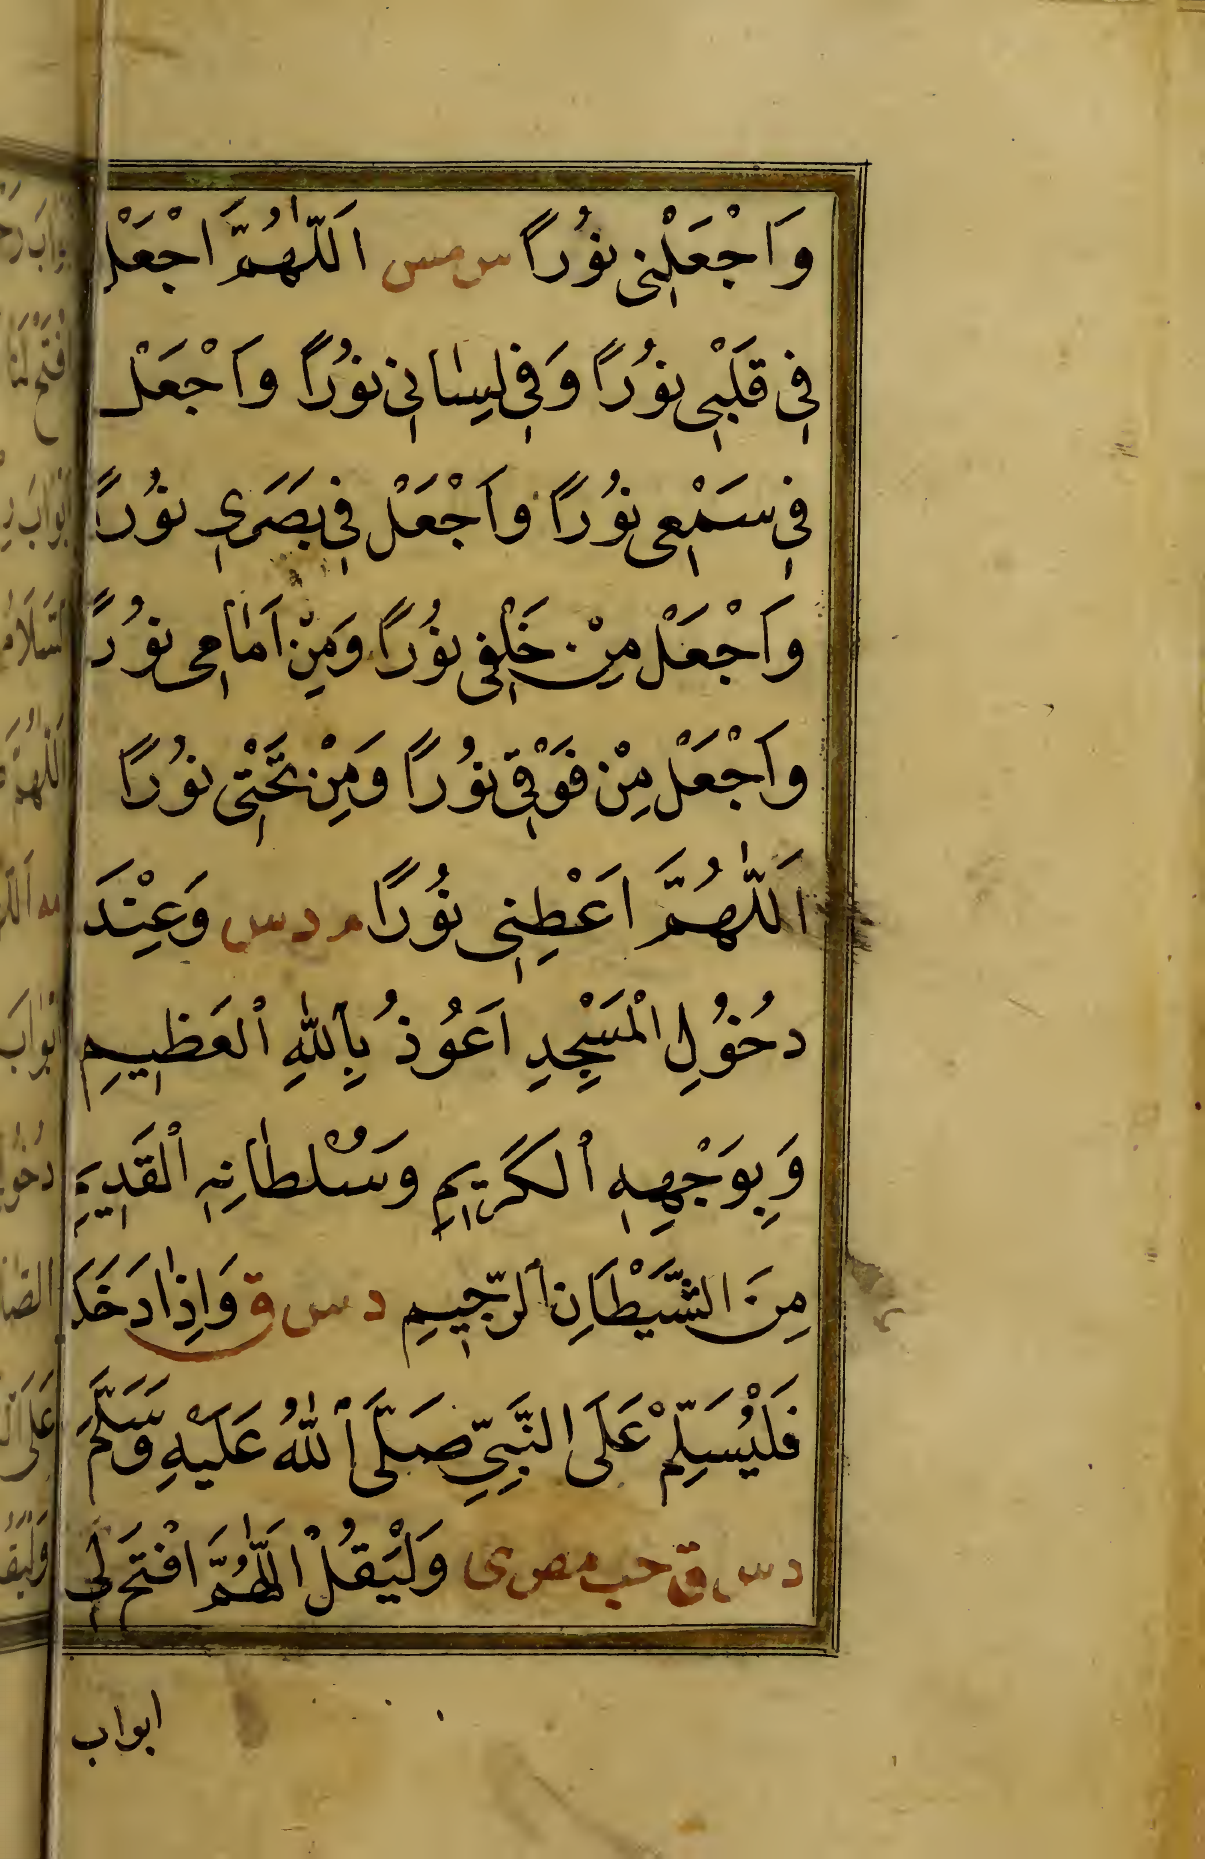 وَاجْعَلْنِي نُورًا س مس اَللّٰهُمَّ اجْعَلْ
فِي قَلْبِي نُورًا وَفِي لِسَانِي نُورًا وَاجْعَلْ
فِي سَمْعِي نُورًا وَاجْعَلْ فِي بَصَرِي نُورًا
وَاجْعَلْ مِنْ خَلْفِي نُورًا وَمِنْ اَمَامِي نُورًا
وَاجْعَلْ مِنْ فَوْقِي نُورًا وَمِنْ تَحْتِي نُورًا
اَللّٰهُمَّ اَعْطِنِي نُورًا م د س وَعِنْدَ
دُخُولِ الْمَسْجِدِ اَعُوذُ بِاللّٰهِ الْعَظِيمِ
وَبِوَجْهِهِ الْكَرِيمِ وَسُلْطَانِهِ الْقَدِيمِ
مِنَ الشَّيْطَانِ الرَّجِيمِ د س ق وَاِذَا دَخَلَ
فَلْيُسَلِّمْ عَلَى النَّبِيِّ صَلَّى اللّٰهُ عَلَيْهِ وَسَلَّمَ
د س ق حب مص ى وَلْيَقُلْ اَللّٰهُمَّ افْتَحْ لِي
ابواب